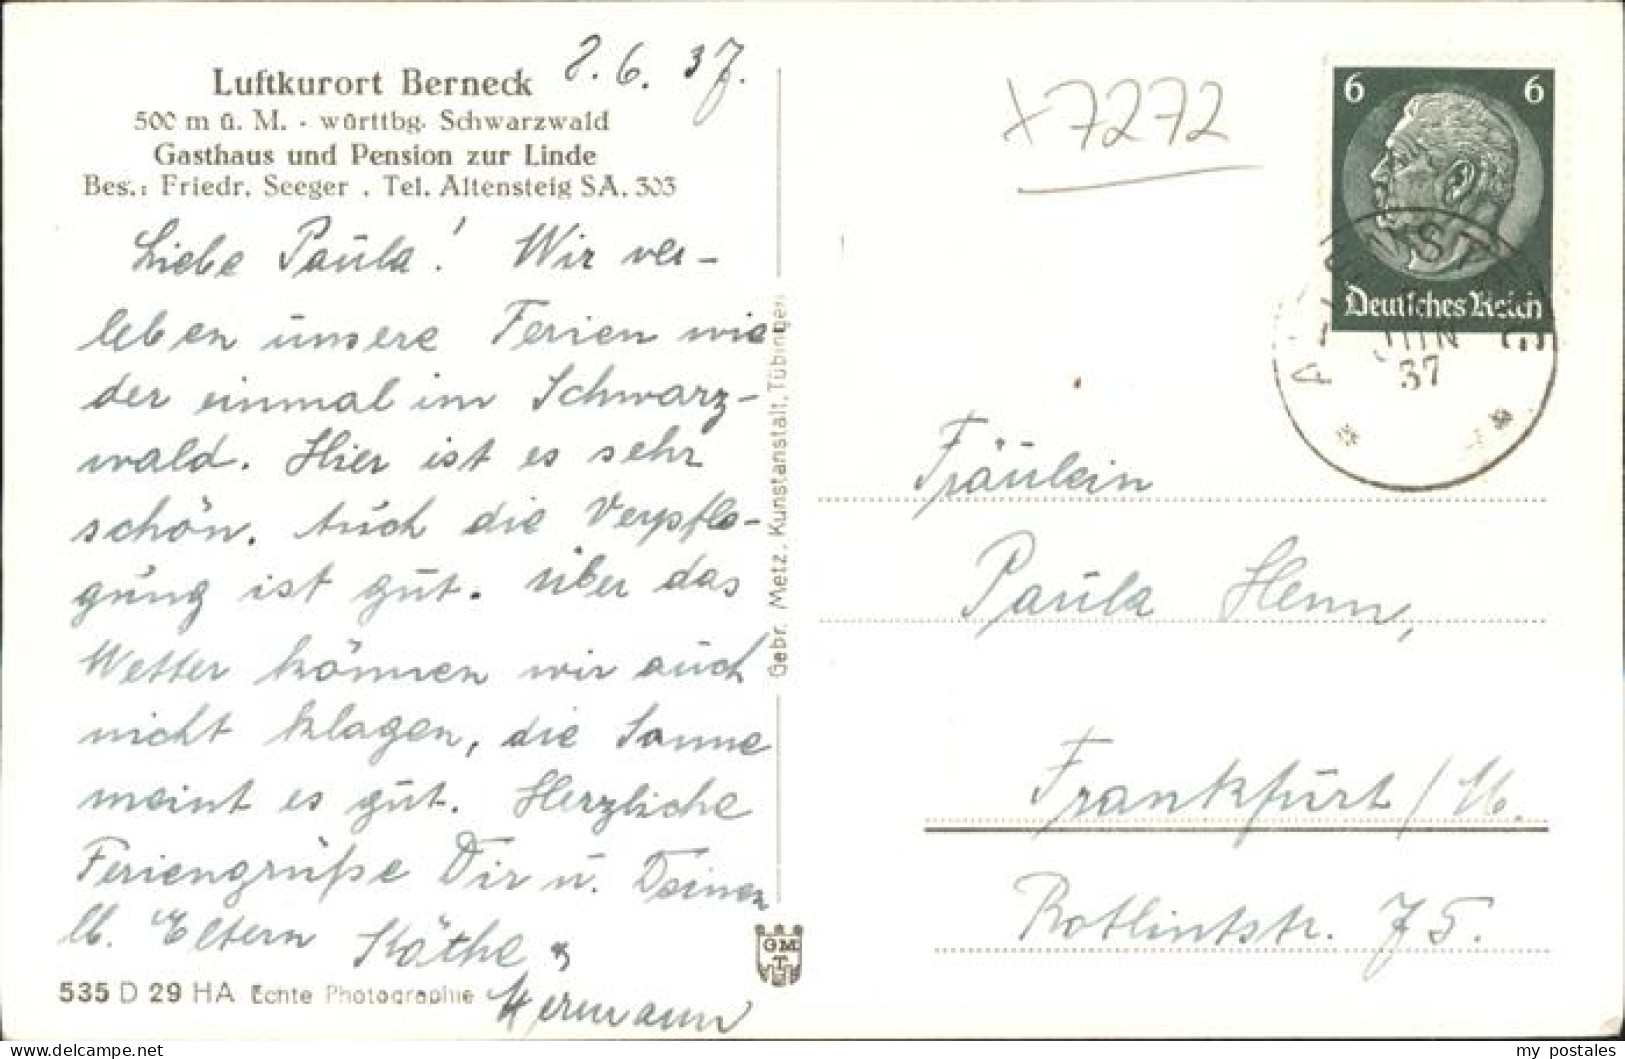 Luftkurort Berneck
500 m ü. M. - württbg. Schwarzwald
Gasthaus und Pension zur Linde
Bes.: Friedr. Seeger . Tel. Altensteig SA. 303
2. 6. 37.
Liebe Paula! Wir ver-
leben unsere Ferien wie
der einmal im Schwarz-
wald. Hier ist es sehr
schön. Auch die Verpfle-
gung ist gut. Über das
Wetter können wir auch
nicht klagen, die Sonne
meint es gut. Herzliche
Feriengrüße Dir u. Deinen
lb. Eltern Käthe &
Hermann
535 D 29 HA Echte Photographie
Gebr. Metz, Kunstanstalt, Tübingen
GMT
x7272
6 6
Deutsches Reich
JUN
37
Fräulein
Paula Henn,
Frankfurt / M.
Rotlintstr. 75.
my postales